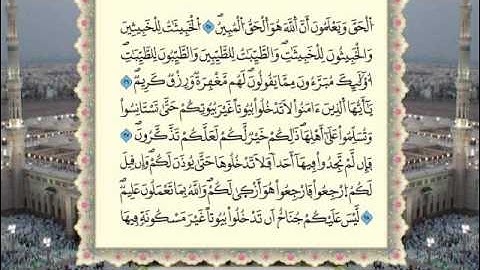 اَلْحَقَّ وَيَعْلَمُونَ أَنَّ اَللَّهَ هُوَ اَلْحَقُّ اُلْمُبِينُۖ اَلْخَبِيثَٰتُ لِلْخَبِيثِينَ
وَالْخَبِيثُونَ لِلْخَبِيثَٰتِۖ وَالطَّيِّبَٰتُ لِلطَّيِّبِينَ وَالطَّيِّبُونَ لِلطَّيِّبَٰتِۖ
أُوْلَٰٓئِكَ مُبَرَّءُونَ مِمَّا يَقُولُونَۖ لَهُم مَّغْفِرَةٌ وَرِزْقٌ كَرِيمٌۖ
يَٰٓأَيُّهَا اَلذِينَ ءَامَنُواْ لَا تَدْخُلُواْ بُيُوتاً غَيْرَ بُيُوتِكُمْ حَتَّىٰ تَسْتَانِسُواْ
وَتُسَلِّمُواْ عَلَىٰٓ أَهْلِهَاۖ ذَٰلِكُمْ خَيْرٌ لَّكُمْ لَعَلَّكُمْ تَذَّكَّرُونَۖ
فَإِن لَّمْ تَجِدُواْ فِيهَآ أَحَداً فَلَا تَدْخُلُوهَا حَتَّىٰ يُوذَنَ لَكُمْۖ وَإِن قِيلَ
لَكُمُ اُرْجِعُواْ فَارْجِعُواْ هُوَ أَزْكَىٰ لَكُمْۖ وَاللَّهُ بِمَا تَعْمَلُونَ عَلِيمٌۖ
لَّيْسَ عَلَيْكُمْ جُنَاحٌ أَن تَدْخُلُواْ بُيُوتاً غَيْرَ مَسْكُونَةٍ فِيهَا